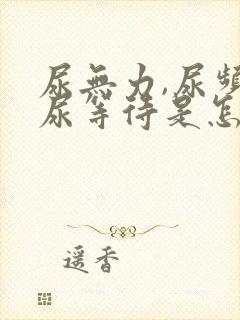 尿無力,尿頻
尿等待是怎
遥香